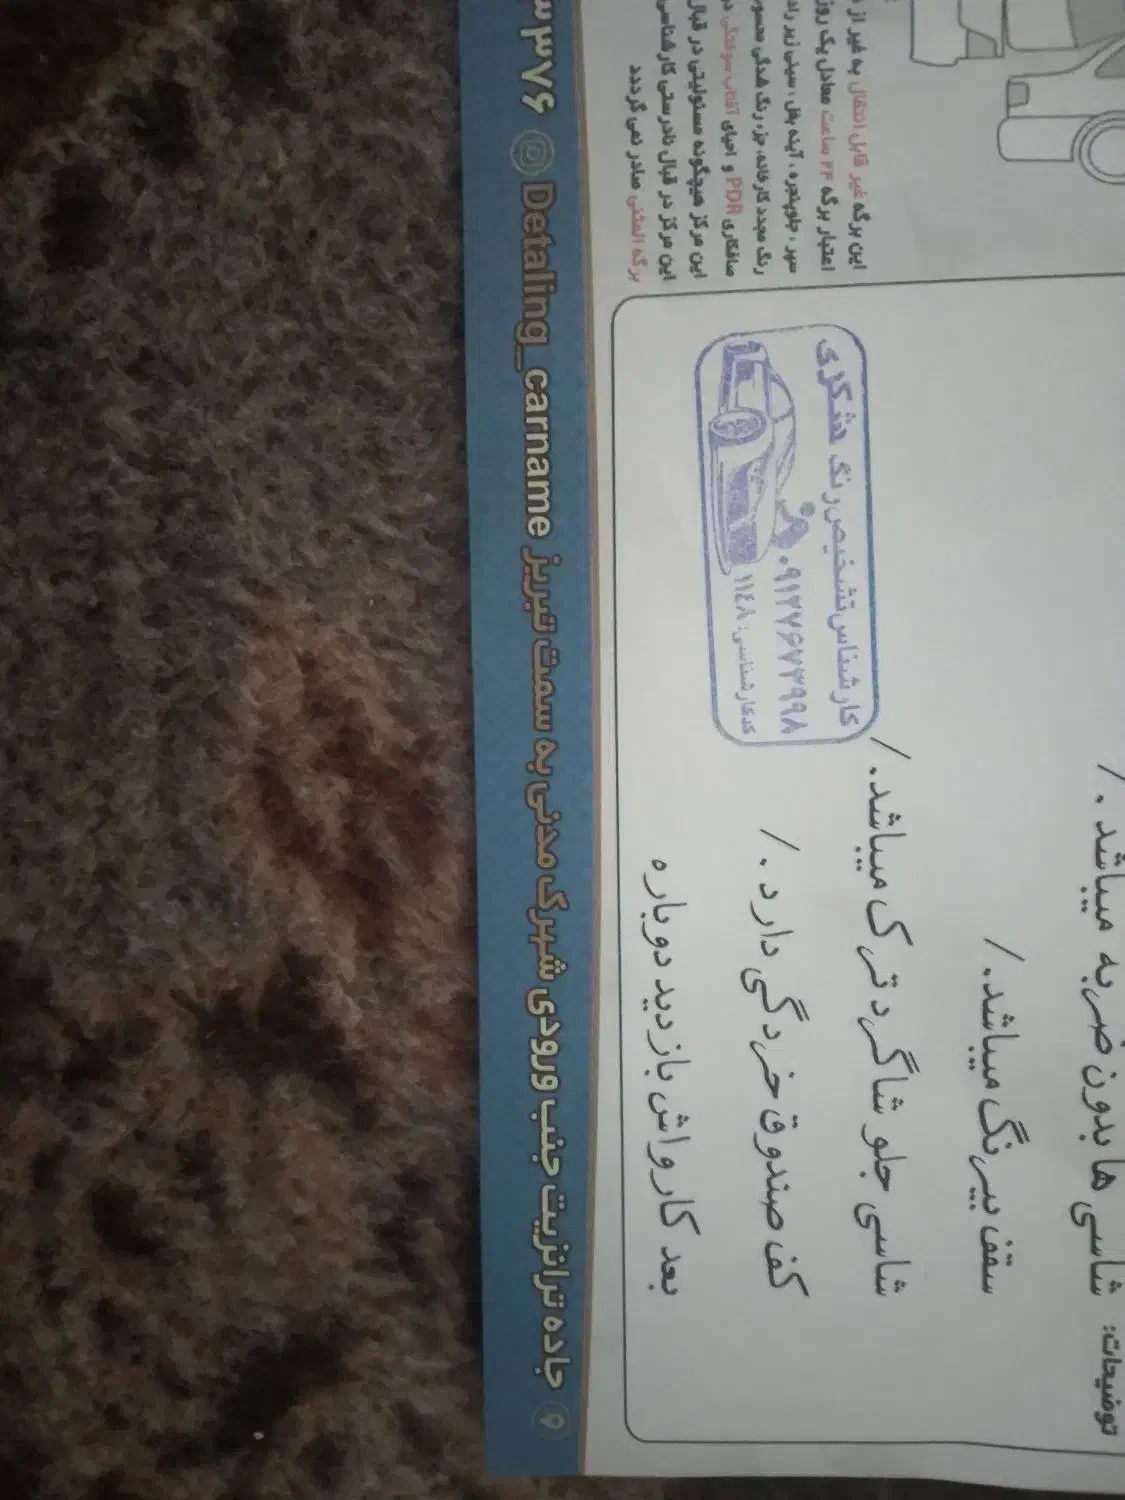 این برگه غیر قابل انتقال به غیر از
اعتبار برگه ۲۴ ساعت معادل یک روز
سپر ، جلوپنجره ، آینه بغل ، سینی زیر
رنگ مجدد کارخانه، جزء رنگ شدگی
صافکاری PDR و احیای آفتاب سوختگی
این مرکز هیچگونه مسئولیتی در قبال
این مرکز در قبال نادرستی کارشناسی
برگه المثنی صادر نمی گردد
توضیحات:
شاسی ها بدون ضربه میباشد . /
سقف بیرنگ میباشد. /
شاسی جلو شاگرد ترک میباشد. /
کف صندوق خردگی دارد . /
بعد کارواش بازدید دوباره
کارشناس تشخیص رنگ شکری
۰۹۱۲۷۶۷۳۹۹۸
کد کارشناسی: ۱۱٤۸
جاده ترانزیت جنب ورودی شهرک مدنی به سمت تبریز Detaling_carname ۳۷۶